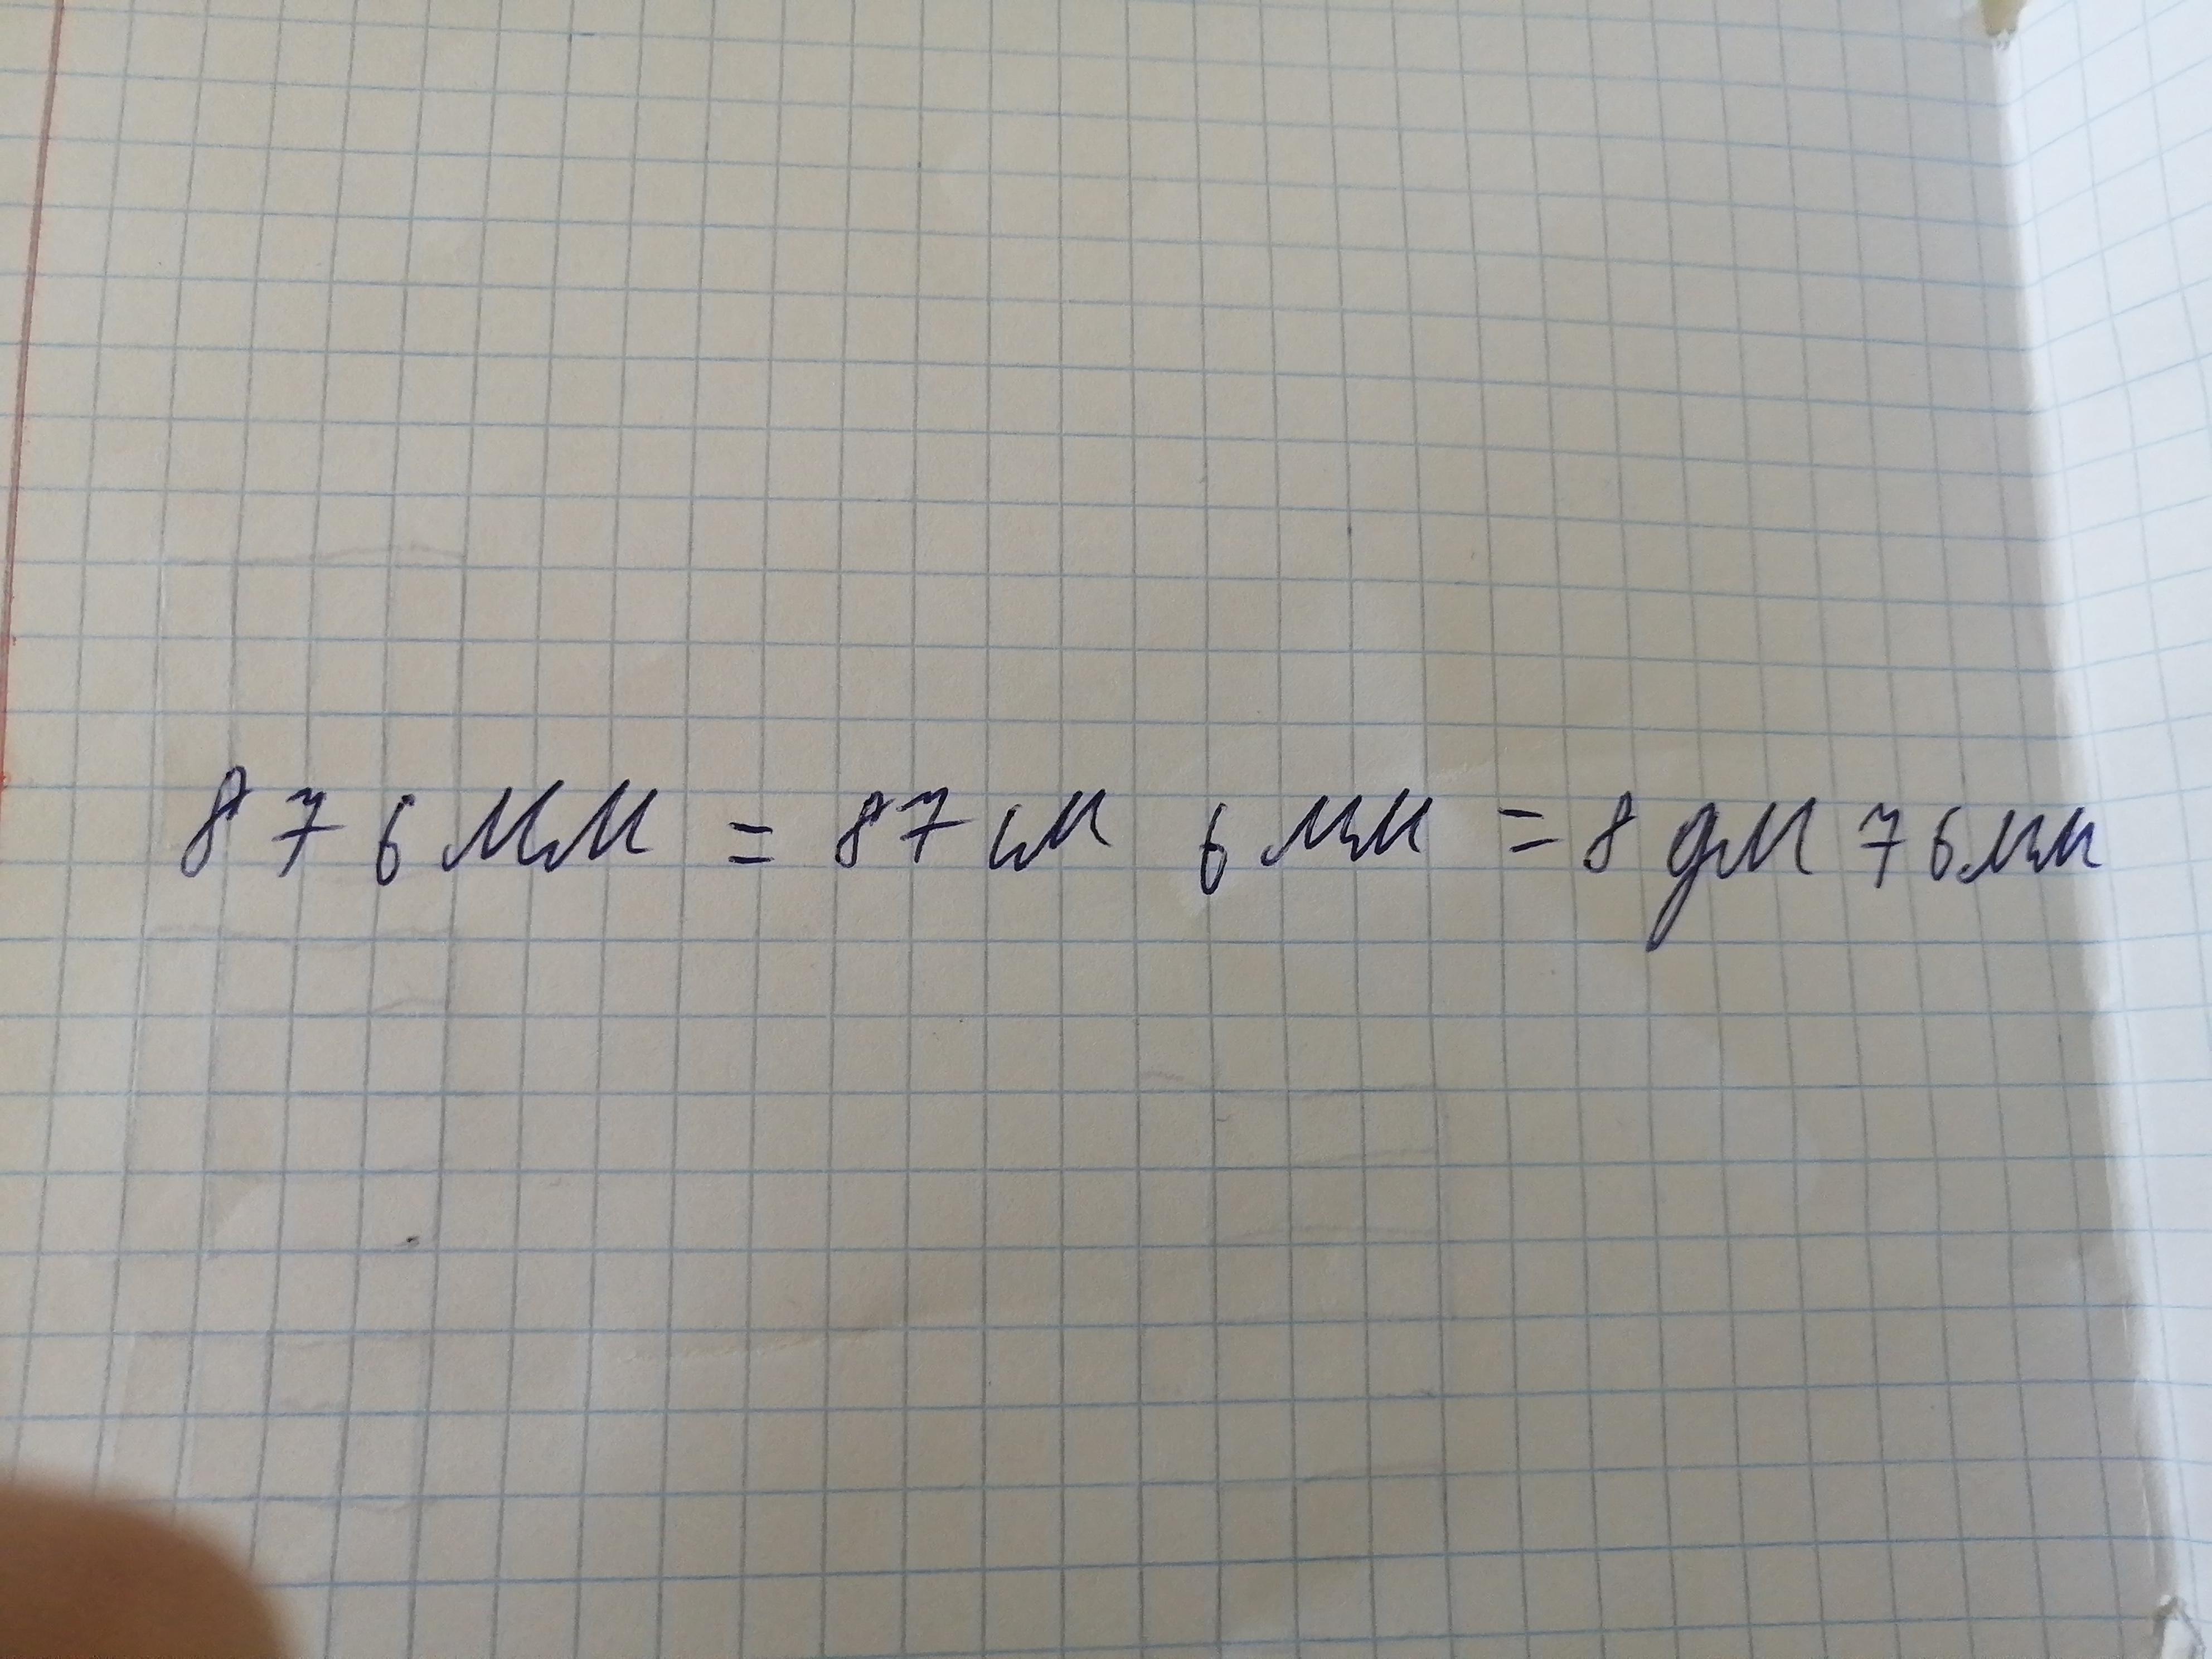 876 мм = 87 см 6 мм = 8 дм 76 мм